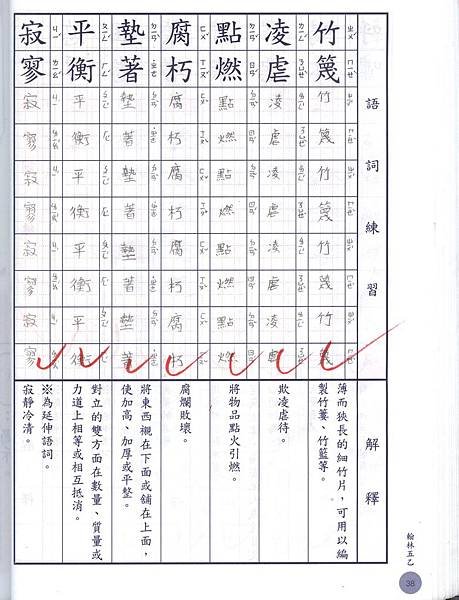 語詞練習
解釋
竹篾竹篾竹篾竹篾竹篾
薄而狹長的細竹片，可用以編
製竹簍、竹籃等。
凌虐凌虐凌虐凌虐凌虐
欺凌虐待。
點燃點燃點燃點燃點燃
將物品點火引燃。
腐朽腐朽腐朽腐朽腐朽
腐爛敗壞。
墊著墊著墊著墊著墊著
將東西襯在下面或鋪在上面，
使加高、加厚或平整。
平衡平衡平衡平衡平衡
對立的雙方面在數量、質量或
力道上相等或相互抵消。
寂寥寂寥寂寥寂寥寂寥
※為延伸語詞。
寂靜冷清。
翰林五乙
38